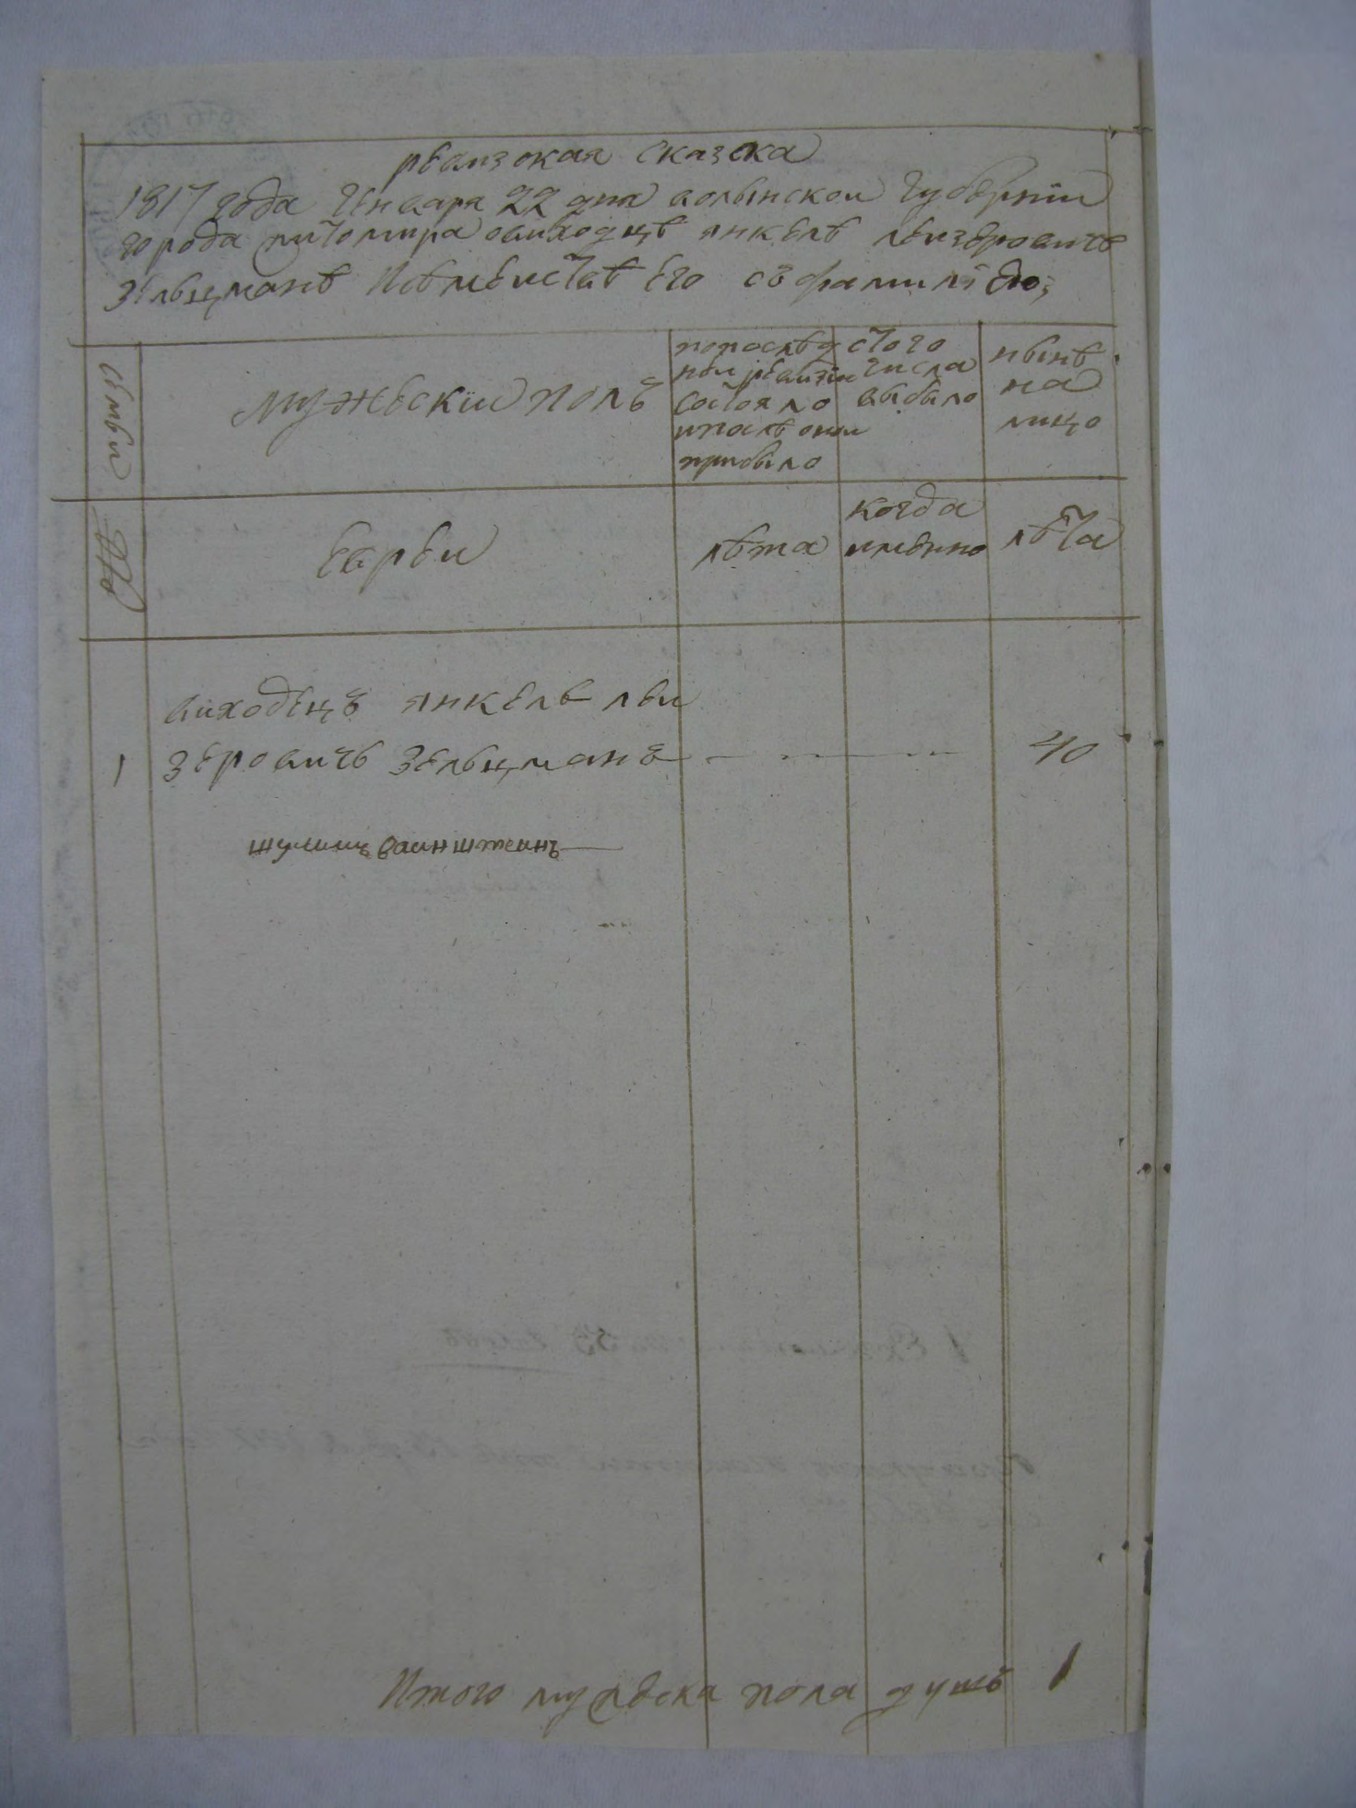 ревизская сказка
1817 года Генваря 22 дня волынской Губернии
города житомира овиходцѣ янкелѣ лейзеровичѣ
Зельцманѣ Его съ фамилiею
Семьи
мужеской полъ
попослѣд
ней ревизiи
состояло
ипослѣ оной
прибыло
стого
числа
выбыло
нынѣ
на
лицо
№
Евреи
лѣта
когда
имянно
лѣта
виходецъ янкель леи
1 зеровичь Зельцманъ 40
шулимъ ваинштеинъ
Итого мужеска пола душъ 1